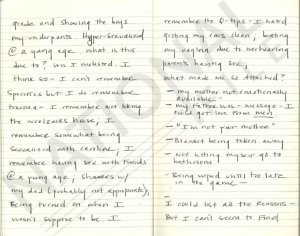 grade and showing the boys
my underpants. Hyper-sexualized
@ a young age. What is this
due to? Was I molested. I
think so - I can't remember
specifics but I do remember
trauma - I remember not liking
the house, I
remember somewhat being
sexualized with Caroline, I
remember having sex with friends
@ a young age, showers w/
my dad (probably not appropriate),
Being turned on when I
wasn't suppose to be. I
remember the Q-tips - I hated
getting my ears clean,
my vagina due to overhearing
parents having sex,
What made me so attached?
- my mother not emotionally
available -
- my father was - message - I
could get love from men
- "I'm not your mother"
- Blanket being taken away
- not letting myself go to
bathroom
- Being wiped until too late
in the game -
-
I could list all the reasons -
But I can't seem to find